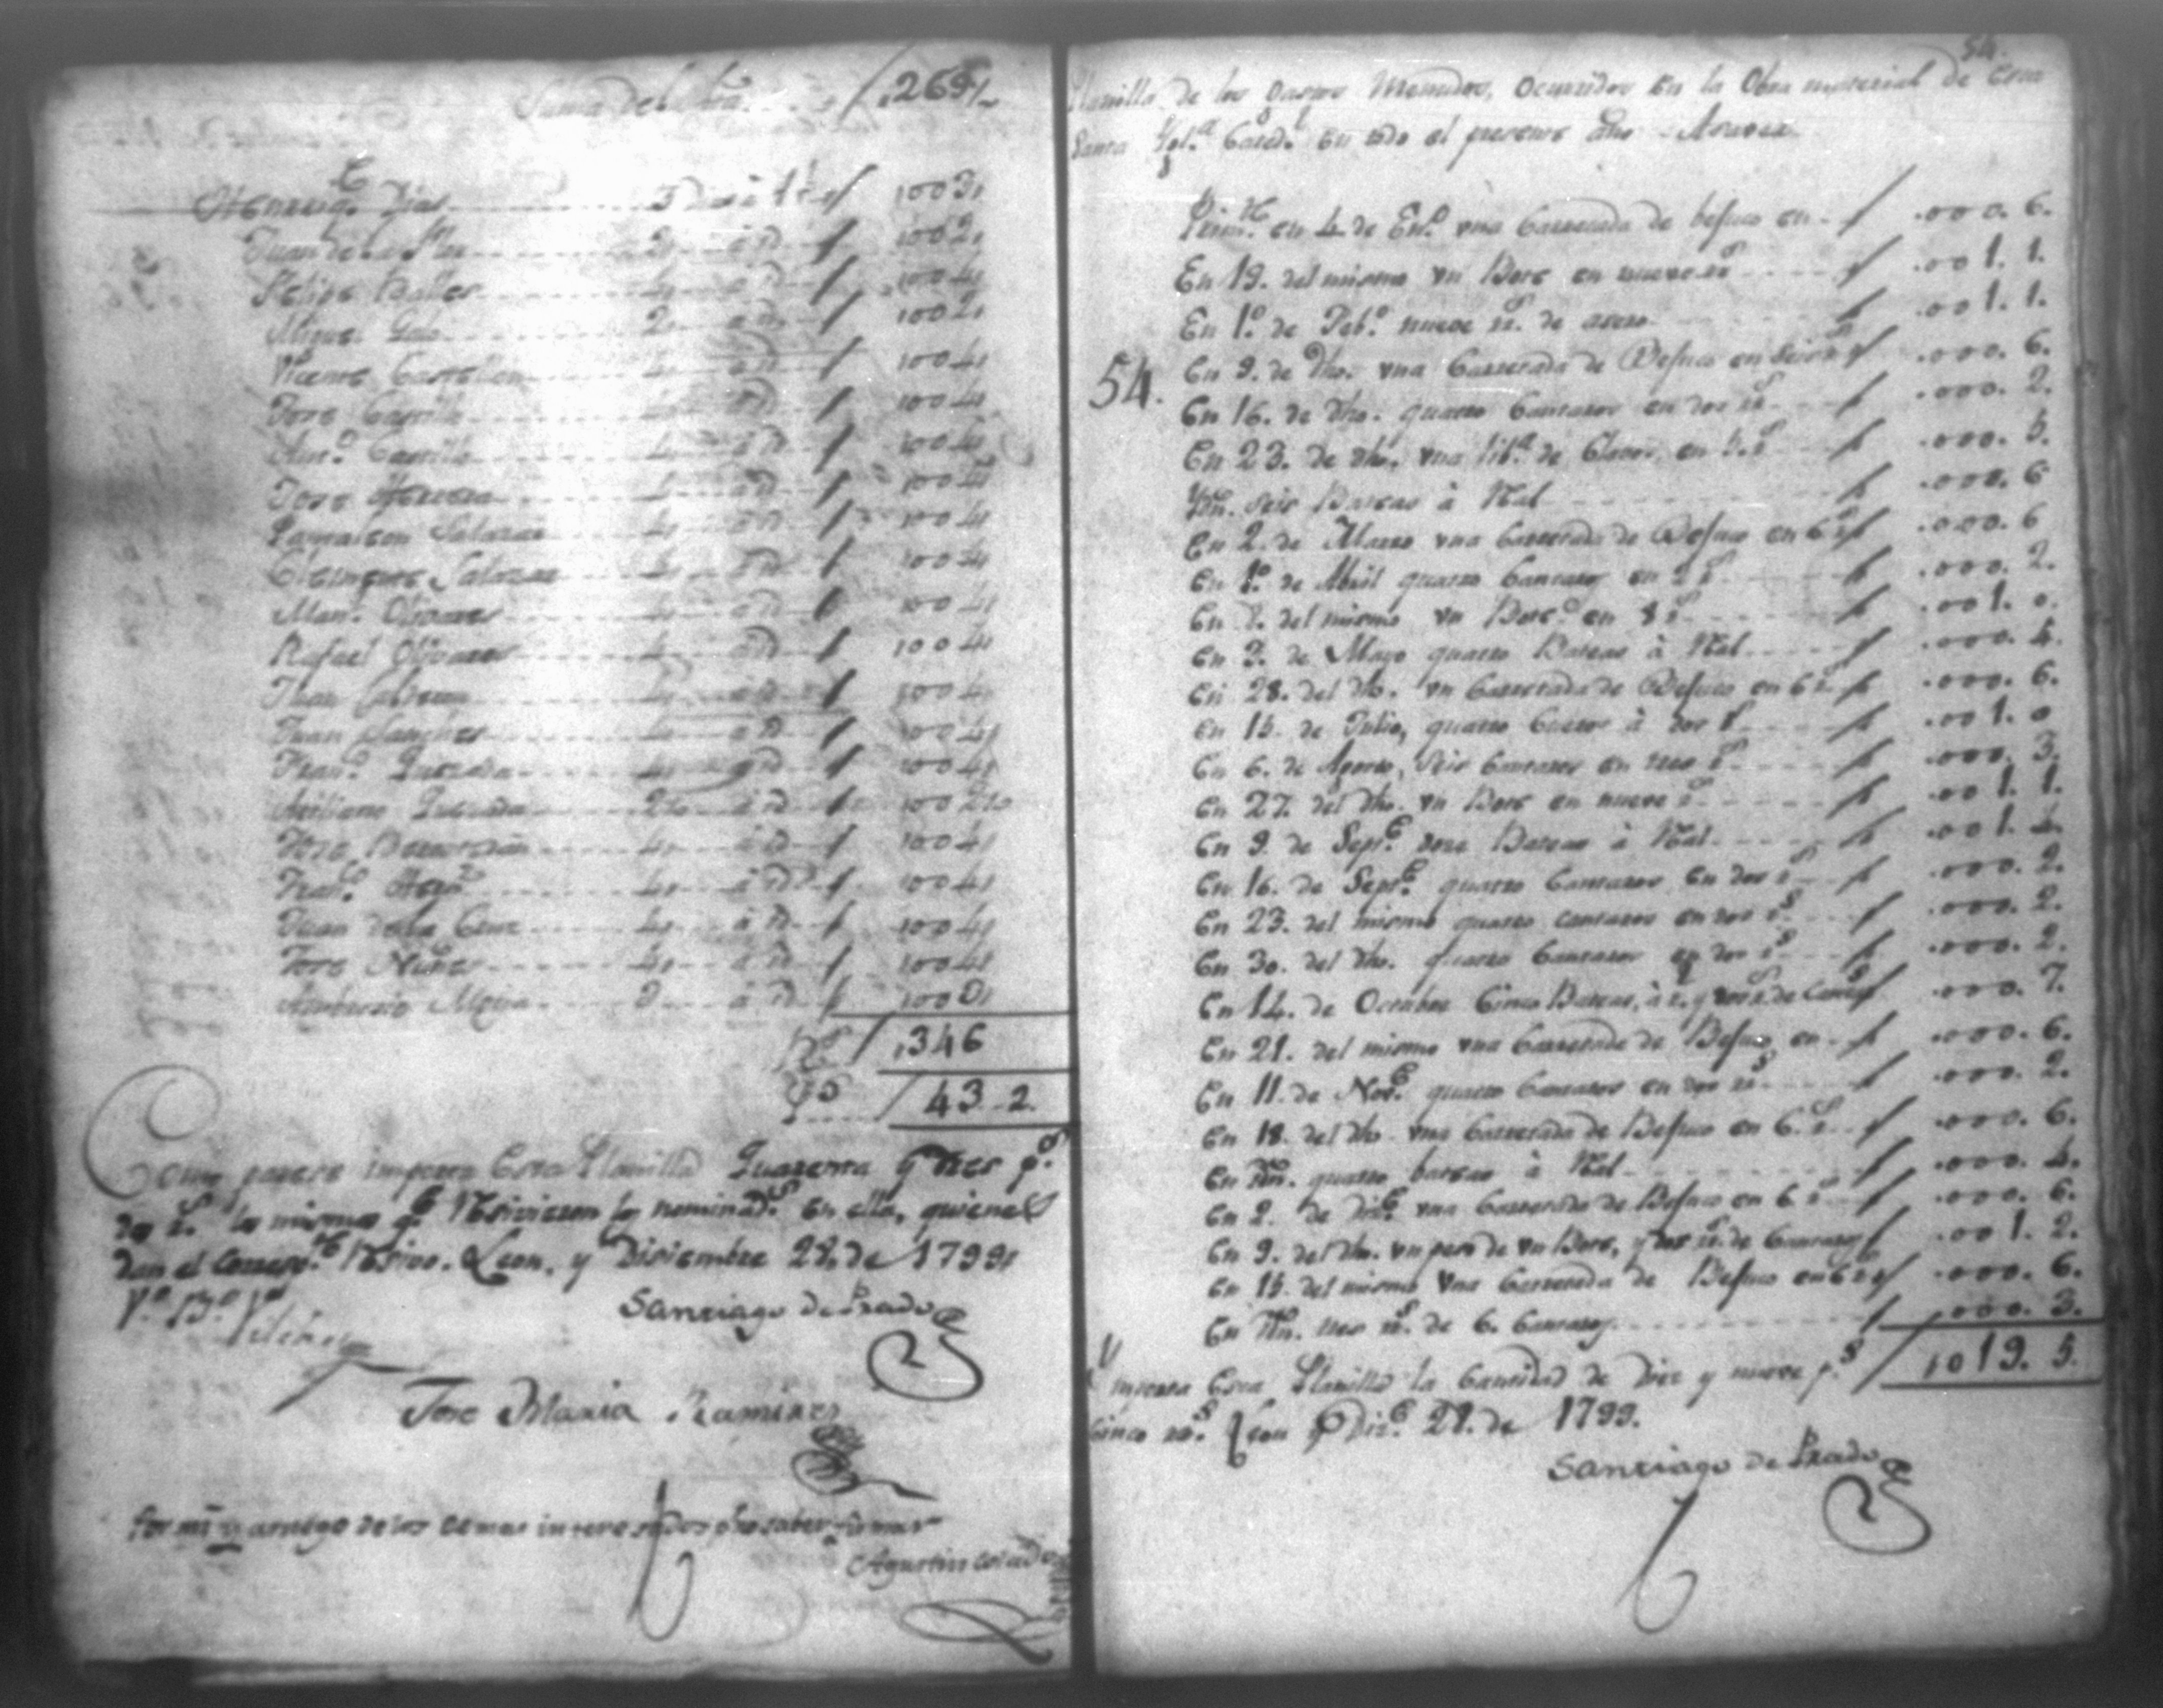 Suma de la bta. / ,269,
Henrriq.e Dias 3 Dias à 1 r. / ,,003,
Juan de la Cruz 2, à id. / ,,002,
Felipe Valles 4, à id. / ,,004,
Miguel Galo 2, à id. / ,,002,
Vicente Castellon 4, à id. / ,,004,
Jose Castillo 4, à id. / ,,004,
Ant.o Castillo 4, à id. / ,,004,
Jose Herrera 4, à id. / ,,004,
Pantaleon Salazar 4, à id. / ,,004,
Salazar 4, à id. / ,,004,
Man.l Olivares 4, à id. / ,,004,
Rafael Olivares 4, à id. / ,,004,
Juan 4, à id. / ,,004,
Juan Sanches 4, à id. / ,,004,
Fran.co Quesada 4, à id. / ,,004,
Quesada 2, à id. / ,,002,
Jose 4, à id. / ,,004,
Fran.co Hern.z 4, à id. / ,,004,
Juan de la Cruz 4, à id. / ,,004,
Jose Nuñes 4, à id. / ,,004,
Ambrosio Mejia 3 à id. / ,,003,
R.s / ,346
P.s / 43 2.
Como parece importa Esta Planilla Quarenta y tres p.s
dos r.s los mismos q.e Resivieron los nominad.s en ella, quienes
dan el corresp.te Resivo. Leon, y Disiembre 28, de 1799,
V.o B.o
Santiago de Prado
Jose Maria Ramires
Por mi y arruego de los demas interesados p.r no saber firmar
Agustin
54.
Planilla de los gastos Menudos, Ocurridos en la Obra material de Esta
Santa Ygl.a Cated.l en todo el presente año. Asaver
Prim.te en 4. de En.o vna Carretada de bejuco en / .000. 6.
En 19. del mismo vn Bote en nueve r.s / .001. 1.
En 1.o de Feb.o nueve r.s de asero / .001. 1.
54.
En 9. de dho. vna Carretada de Bejuco en seis r.s / .000. 6.
En 16. de dho. quatro Cantaros en dos r.s / .000. 2.
En 23. de dho. vna lib.a de Clavos en 5. r.s / .000. 5.
Ytn. seis Bateas à Real / .000. 6
En 2. de Marzo vna Carretada de Bejuco en 6 r.s / .000. 6
En 1.o de Abril quatro Cantaros en 2 r.s / .000. 2.
En 7. del mismo vn Bote en 8 r.s / .001. 0.
En 7. de Mayo quatro Bateas à Real / .000. 4.
En 28. del dho. vn Carretada de Bejuco en 6 r.s / .000. 6.
En 15. de Julio, quatro Cueros à dos r.s / .001. 0
En 6. de Agosto, seis Cantaros en tres r.s / .000. 3.
En 27. del dho. vn Bote en nueve r.s / .001. 1.
En 9. de Sept.e dose Bateas à Real / .001. 4.
En 16. de Sept.e quatro Cantaros en dos r.s / .000. 2.
En 23. del mismo quatro cantaros en dos r.s / .000. 2.
En 30. del dho. quatro Cantaros en dos r.s / .000. 2.
En 14. de Octubre Cinco Bateas, à r.l y dos r.s de Cant.s / .000. 7.
En 21. del mismo vna Carretada de Bejuco en / .000. 6.
En 11. de Nov.e quatro Cantaros en dos r.s / .000. 2.
En 18. del dho. vna Carretada de Bejuco en 6. r.s / .000. 6.
En Ytn. quatro bateas à Real / .000. 4.
En 2. de Diz.e vna Carretada de Bejuco en 6 r.s / .000. 6.
En 9. del dho. vn peso de vn Bote, y dos r.s de Cantaros / .001. 2.
En 15. del mismo vna Carretada de Bejuco en 6 r.s / .000. 6.
En Ytn. tres r.s de 6. Cantaros / .000. 3.
Ymporta Esta Planilla la Cantidad de Diez y nueve p.s / ,,019. 5.
Cinco r.s Leon y Diz.e 28. de 1799.
Santiago de Prado